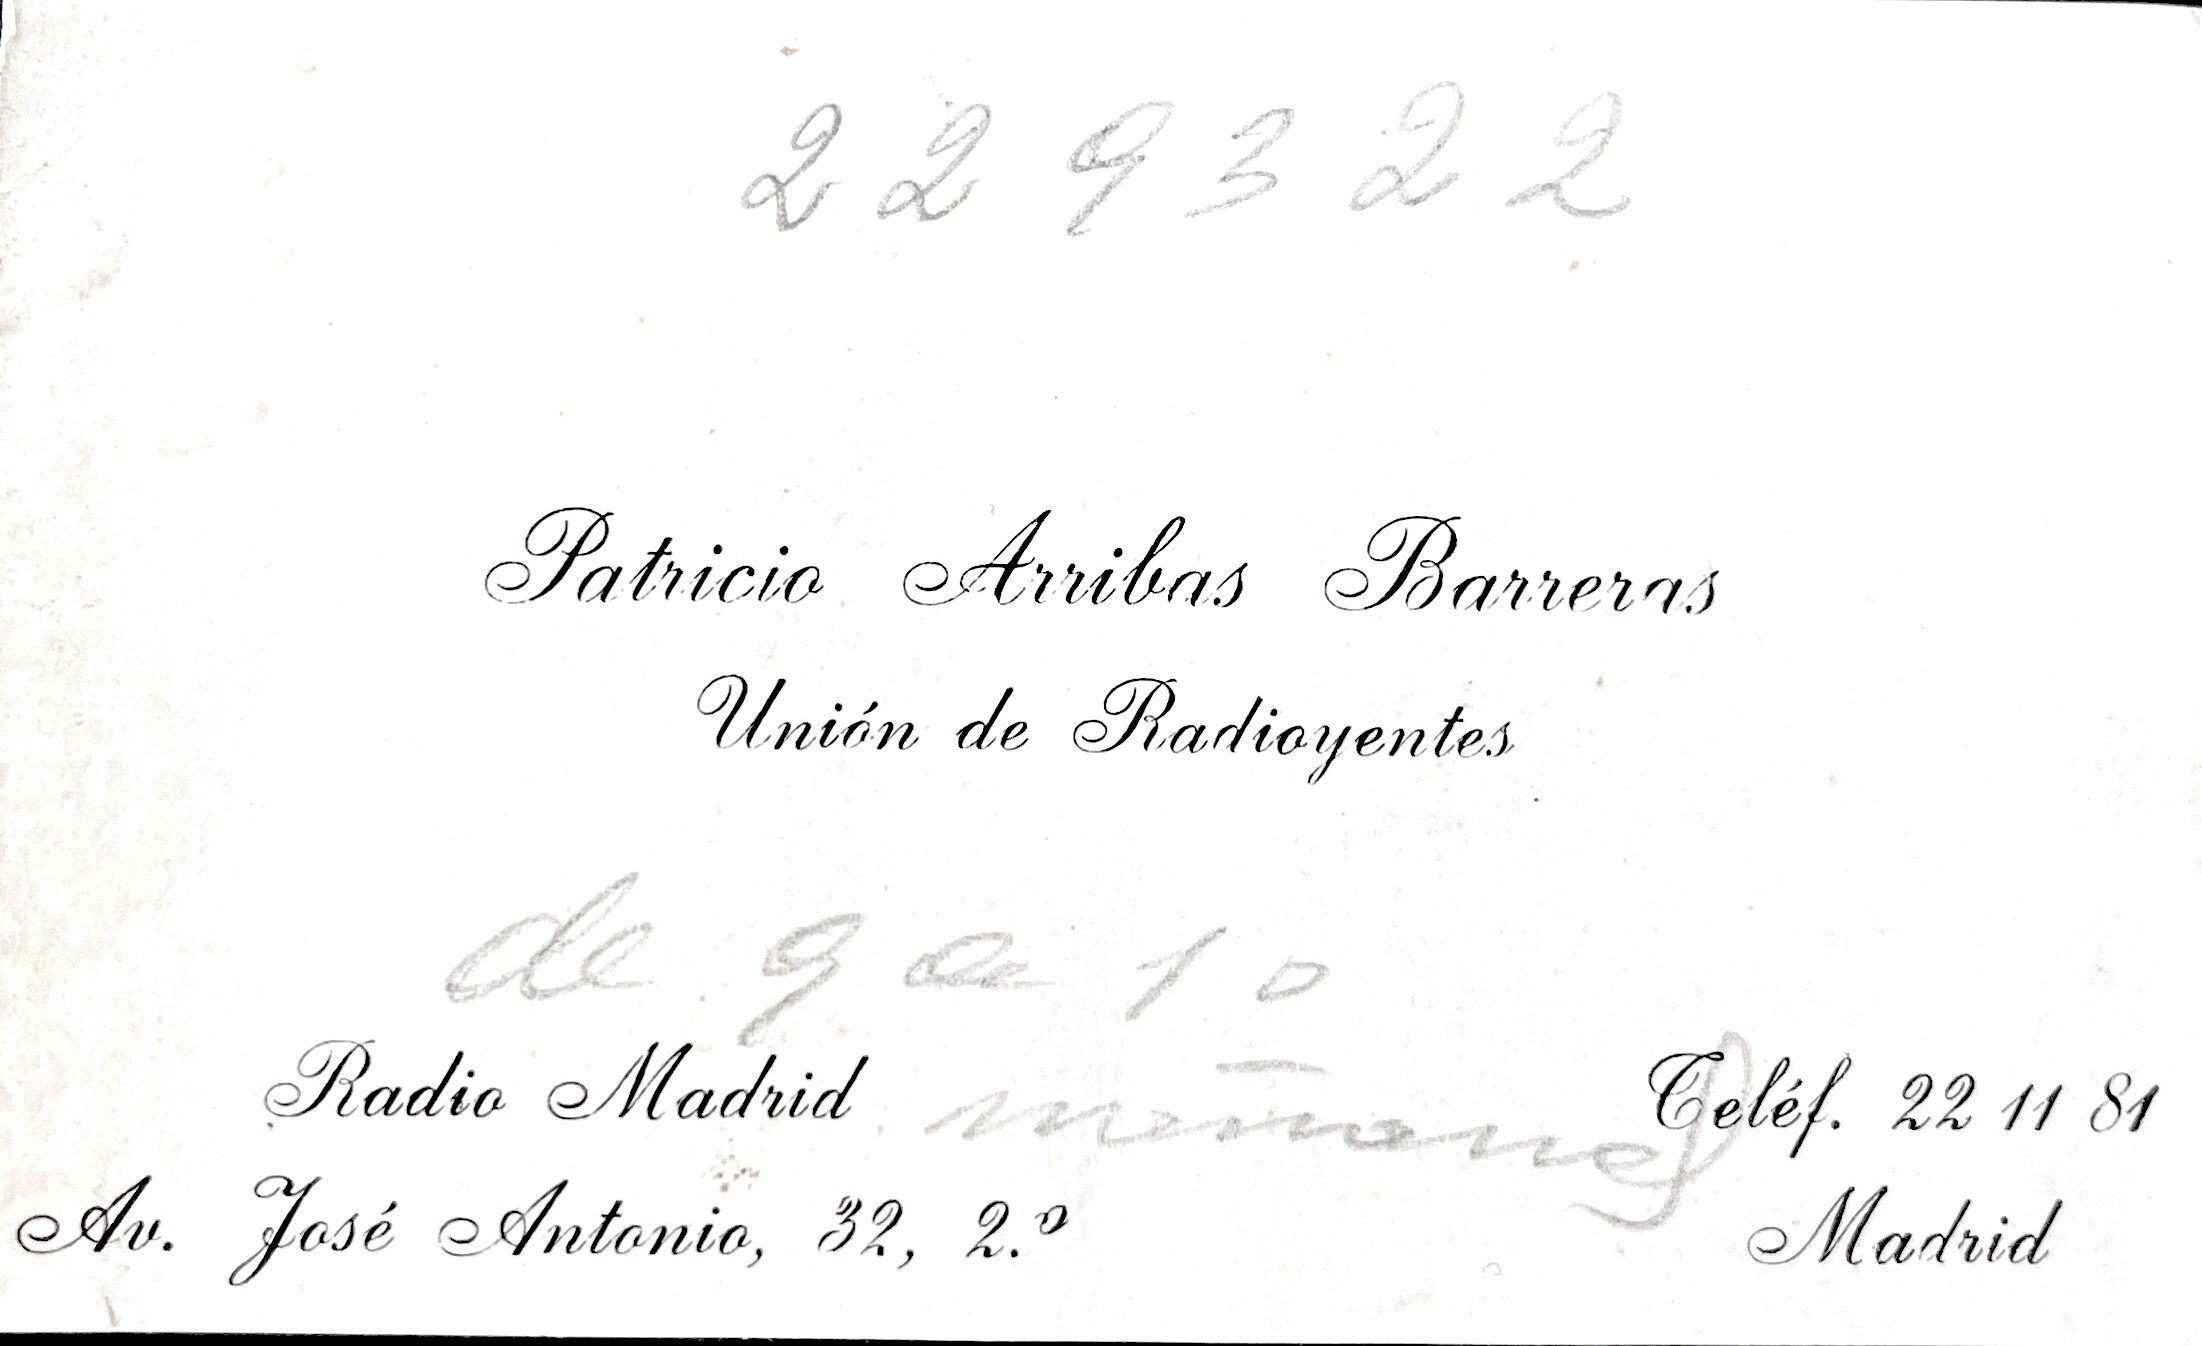 229322
Patricio Arribas Barreras
Unión de Radioyentes
de 9 a 10
mañana
Radio Madrid
Teléf. 22 11 81
Av. José Antonio, 32, 2.º
Madrid